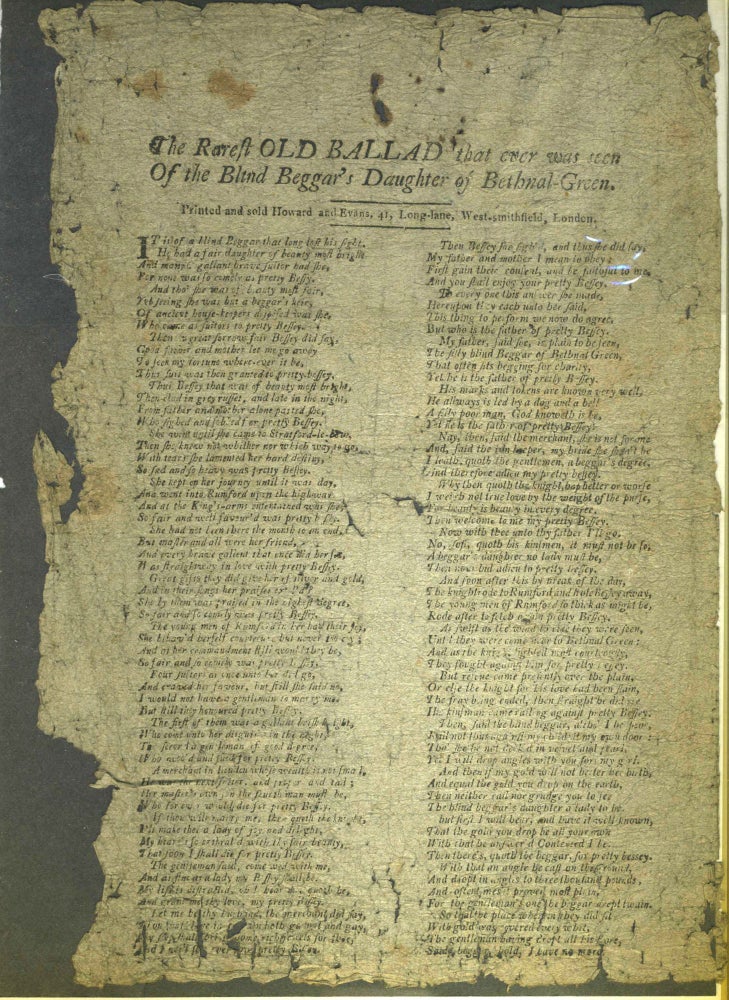 The Rarest OLD BALLAD that ever was seen
Of the Blind Beggar's Daughter of Bethnal-Green.
Printed and sold Howard and Evans, 41, Long-lane, West-smithfield, London.
IT is of a blind Beggar that long lost his sight,
He had a fair daughter of beauty most bright
And many a gallant brave suitor had she,
For none was so comely as pretty Bessey.
And tho' she was of beauty most fair,
Yet seeing she was but a beggar's heir,
Of ancient house-keepers despised was she,
Who came as suitors to pretty Bessey.
Then in great sorrow fair Bessey did say,
Good father and mother let me go away
To seek my fortune where-ever it be,
This suit was then granted to pretty bessey.
Thus Bessey that was of beauty most bright,
Then clad in grey russet, and late in the night,
From father and mother alone parted she,
Who sighed and sobbed for pretty Bessey.
She went until she came to Stratford-le-Bow,
Then she knew not whither nor which way to go,
With tears she lamented her hard destiny,
So sad and so heavy was pretty Bessey.
She kept on her journey until it was day,
And went into Rumford upon the highway
And at the King's-arms entertained was she,
So fair and well favour'd was pretty
She had not been there the month to an end,
But master and all were her friend,
And every brave galient that once did her see,
Was straightway in love with pretty Bessey.
Great gifts they did give her of silver and gold,
And in their songs her praises
She by them was praised in the highest degree,
So fair and so comely was pretty Bessey.
The young men of Rumford
She behav'd herself courteous but never
And at her commandment still would they be,
So fair and so comely was pretty
Four suitors at once unto her did go,
And craved her favour, but still she said no,
I would not have a gentleman to marry me,
But still they honoured pretty Bessey.
The first of them was a gallant
Who came unto her disguised in the night,
The second a gentleman of good degree,
Who wooed and sued for pretty Bessey.
A merchant in London whose wealth is not small,
He was the
Her master's own son the fourth man must be,
Who for ever would die for pretty Bessey.
If thou wilt marry me, then quoth the knight,
I'll make thee a lady of joy and delight,
My heart is enthral'd with thy fair beauty,
That soon I shall die for pretty Bessey.
The gentleman said, come wed with me,
And as fine as a lady my Bessey shall be,
My life is distressed, oh! hear me quoth he,
And grant me thy love, my pretty Bessey.
Let me be thy husband, the merchant did say,
gay,
Then Bessey she sigh'd, and thus she did say,
My father and mother I mean to obey;
First gain their consent, and be faithful to me,
And you shall enjoy your pretty Bessey.
To every one this answer she made,
Hereupon they each unto her said,
This thing to perform we now do agree,
But who is the father of pretty Bessey.
My father, said she, is plain to be seen,
The silly blind Beggar of Bethnal Green,
That often sits begging for charity,
Yet he is the father of pretty Bessey.
His marks and tokens are known very well,
He allways is led by a dog and a bell
A silly poor man, God knoweth is he,
Yet he is the father of pretty Bessey.
Nay, then, said the merchant, she is not for me
And, said the inn keeper, my bride she shan't be
I loath, quoth the gentlemen, a beggar's degree,
And therefore adieu my pretty bessey.
Why then quoth the knight, hap better or worse
I weigh not true love by the weight of the purse,
For beauty is beauty in every degree,
Then welcome to me my pretty Bessey.
Now with thee unto thy father I'll go,
No, soft, quoth his kinsmen, it must not be so,
A beggar's daughter no lady must be,
Then now but adieu to pretty bessey.
And soon after this by break of the day,
The knight rode to Rumford and stole Bessey away,
The young men of Rumford so thick as might be,
Rode after to fetch again pretty Bessey.
As swift as the wind to ride they were seen,
Until they were come near to Bethnal Green;
And as the knight lighted most courteously,
They fought against him for pretty
But rescue came presently over the plain,
Or else the knight for his love had been slain,
The fray being ended, then straight
His kinsman came railing against pretty Bessey.
Then, said the blind beggar, altho' I be poor,
Rail not thus against my child at my own door;
Tho' she be not decked in velvet and pearl,
Yet I will drop angles with you for my girl.
And then if my gold will not better her birth,
And equal the gold you drop on the earth,
Then neither rail nor grudge you to see
The blind beggar's daughter a lady to be.
but first I will hear, and have it well known,
That the gold you drop be all your own
With that he answer'd Contented I be
Then there's, quoth the beggar, for pretty bessey.
With that an angle he cast on the ground,
And dropt in angles to three thousand pounds,
And oftentimes it proved most plain,
For the gentleman's one the beggar dropt twain.
So that the place wherein they did sit
With gold was covered every whit,
The gentleman having dropt all his store,
Said, beggar, hold, I have no more.